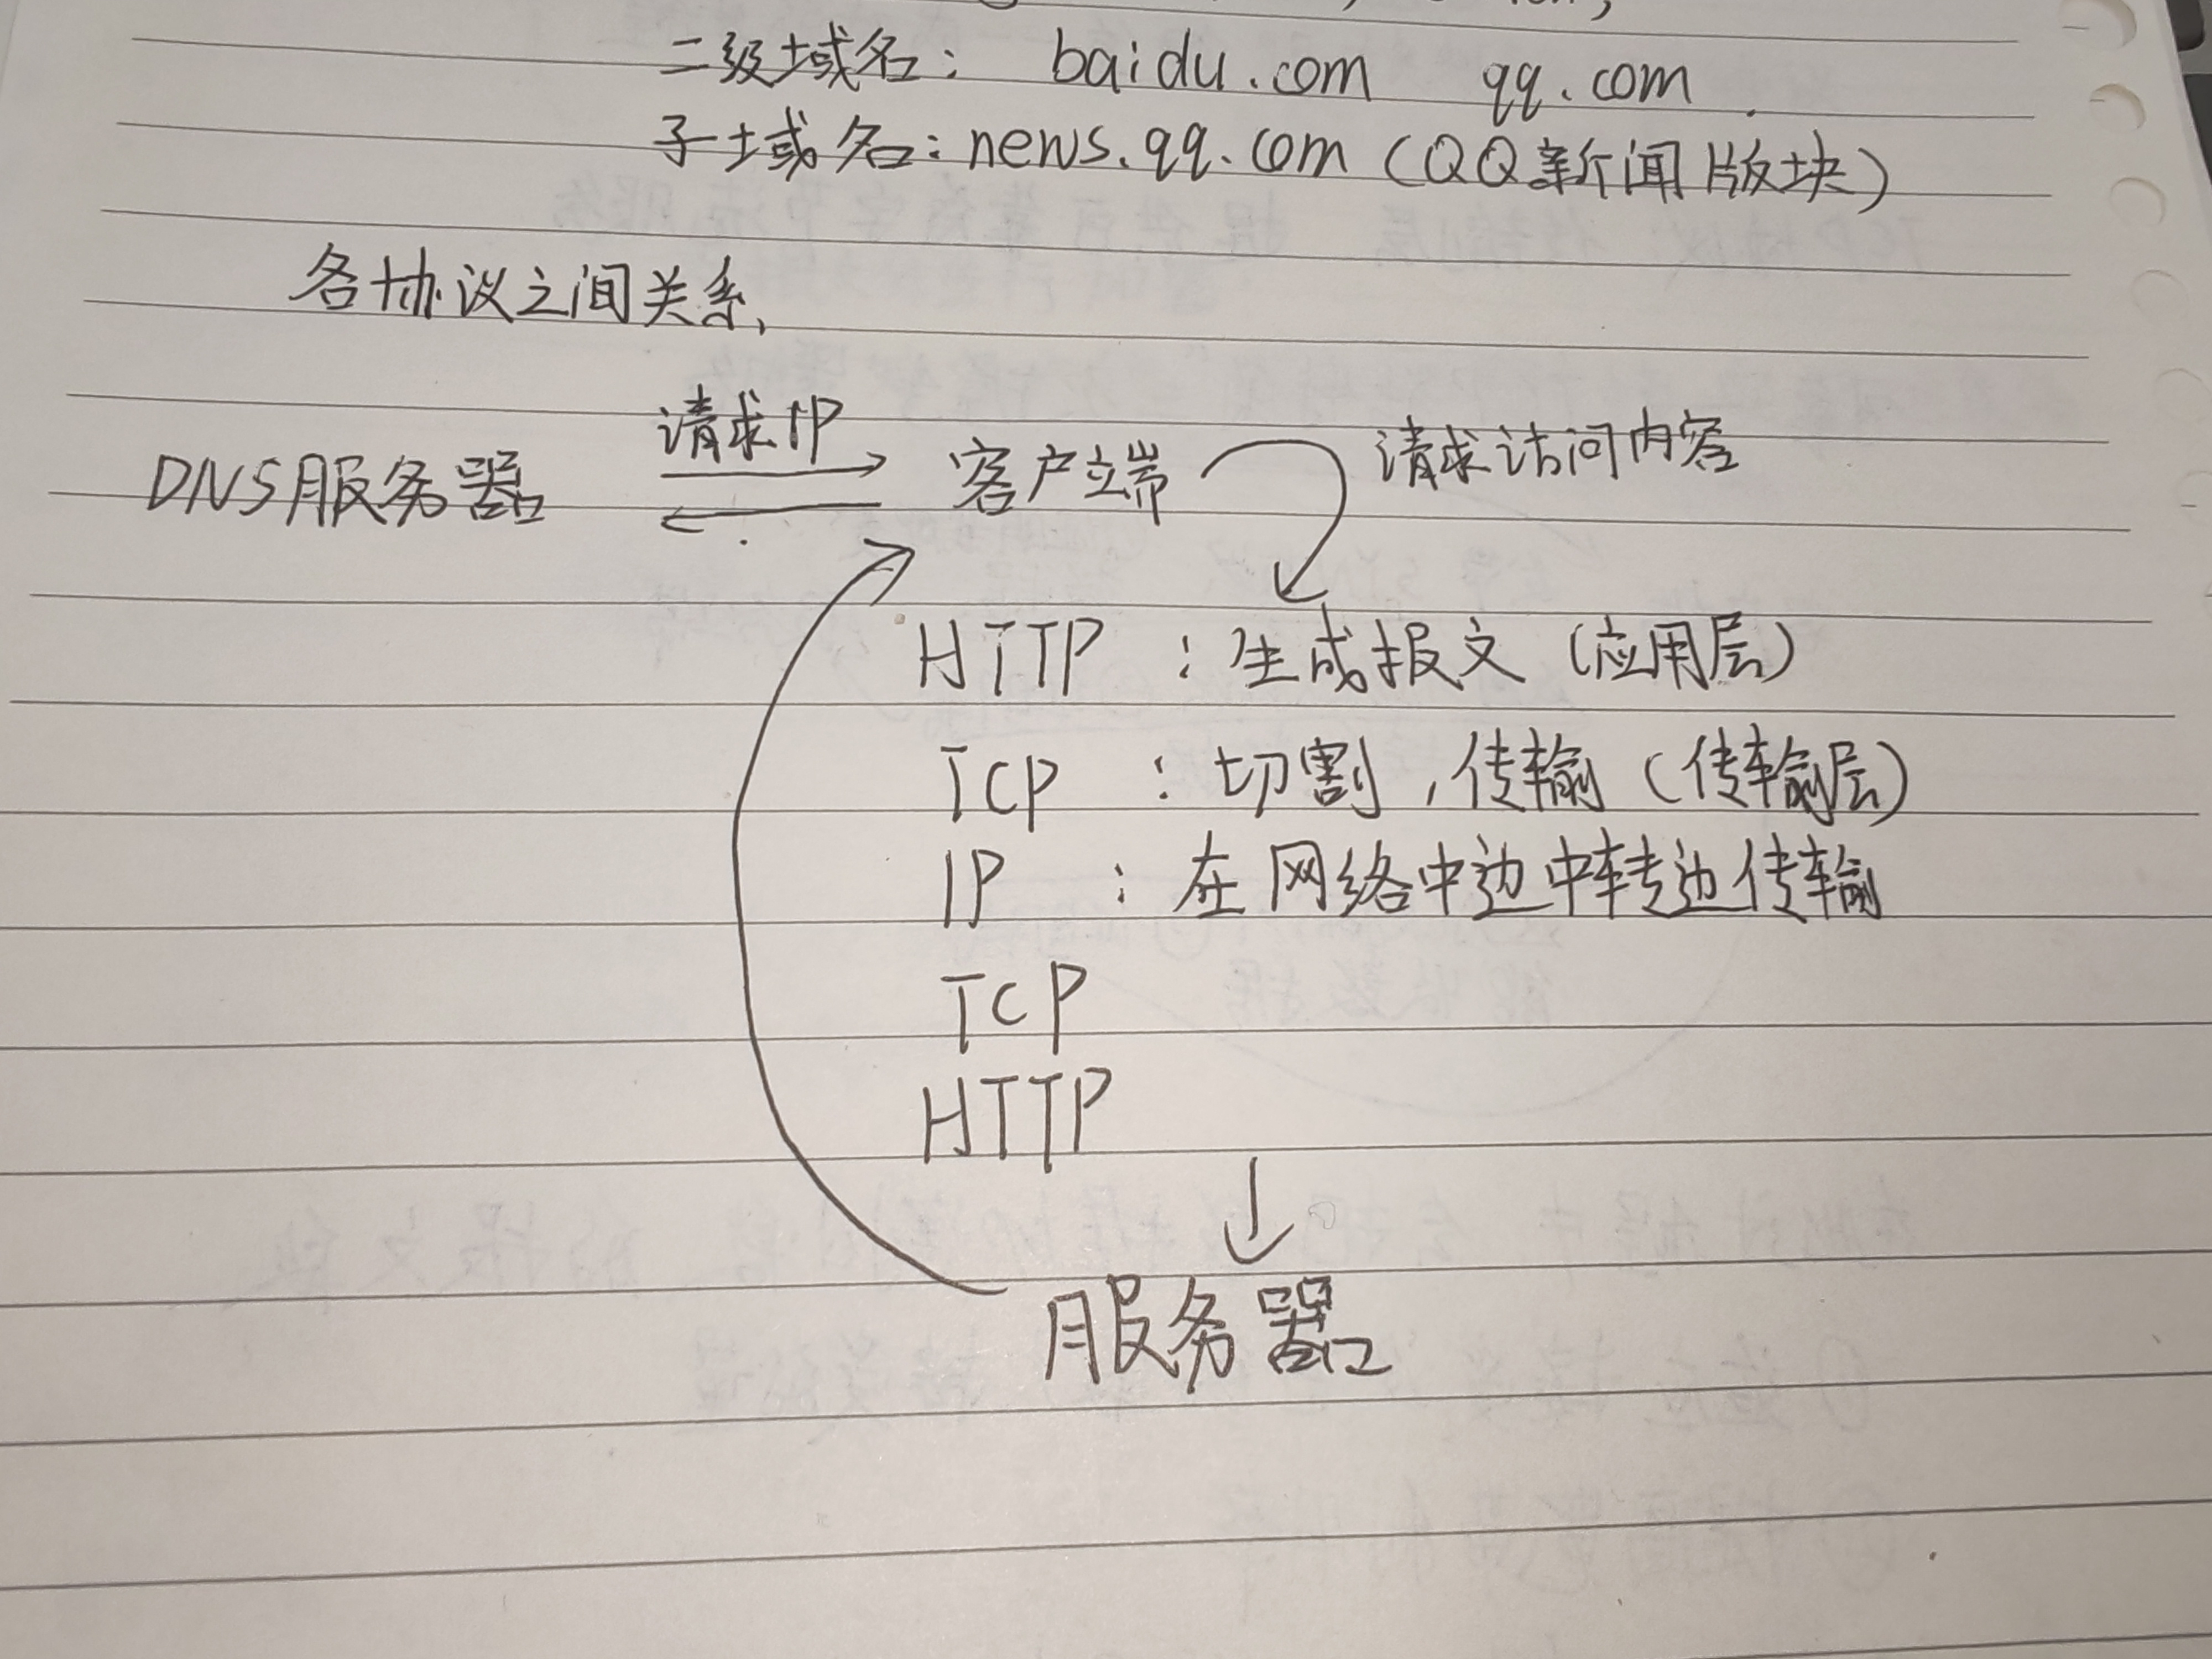 二级域名： baidu.com qq.com
子域名：news.qq.com（QQ新闻版块）
各协议之间关系、
请求IP
DNS服务器 客户端 请求访问内容
HTTP ：生成报文（应用层）
TCP ：切割，传输（传输层）
IP ：在网络中边中转边传输
TCP
HTTP
服务器